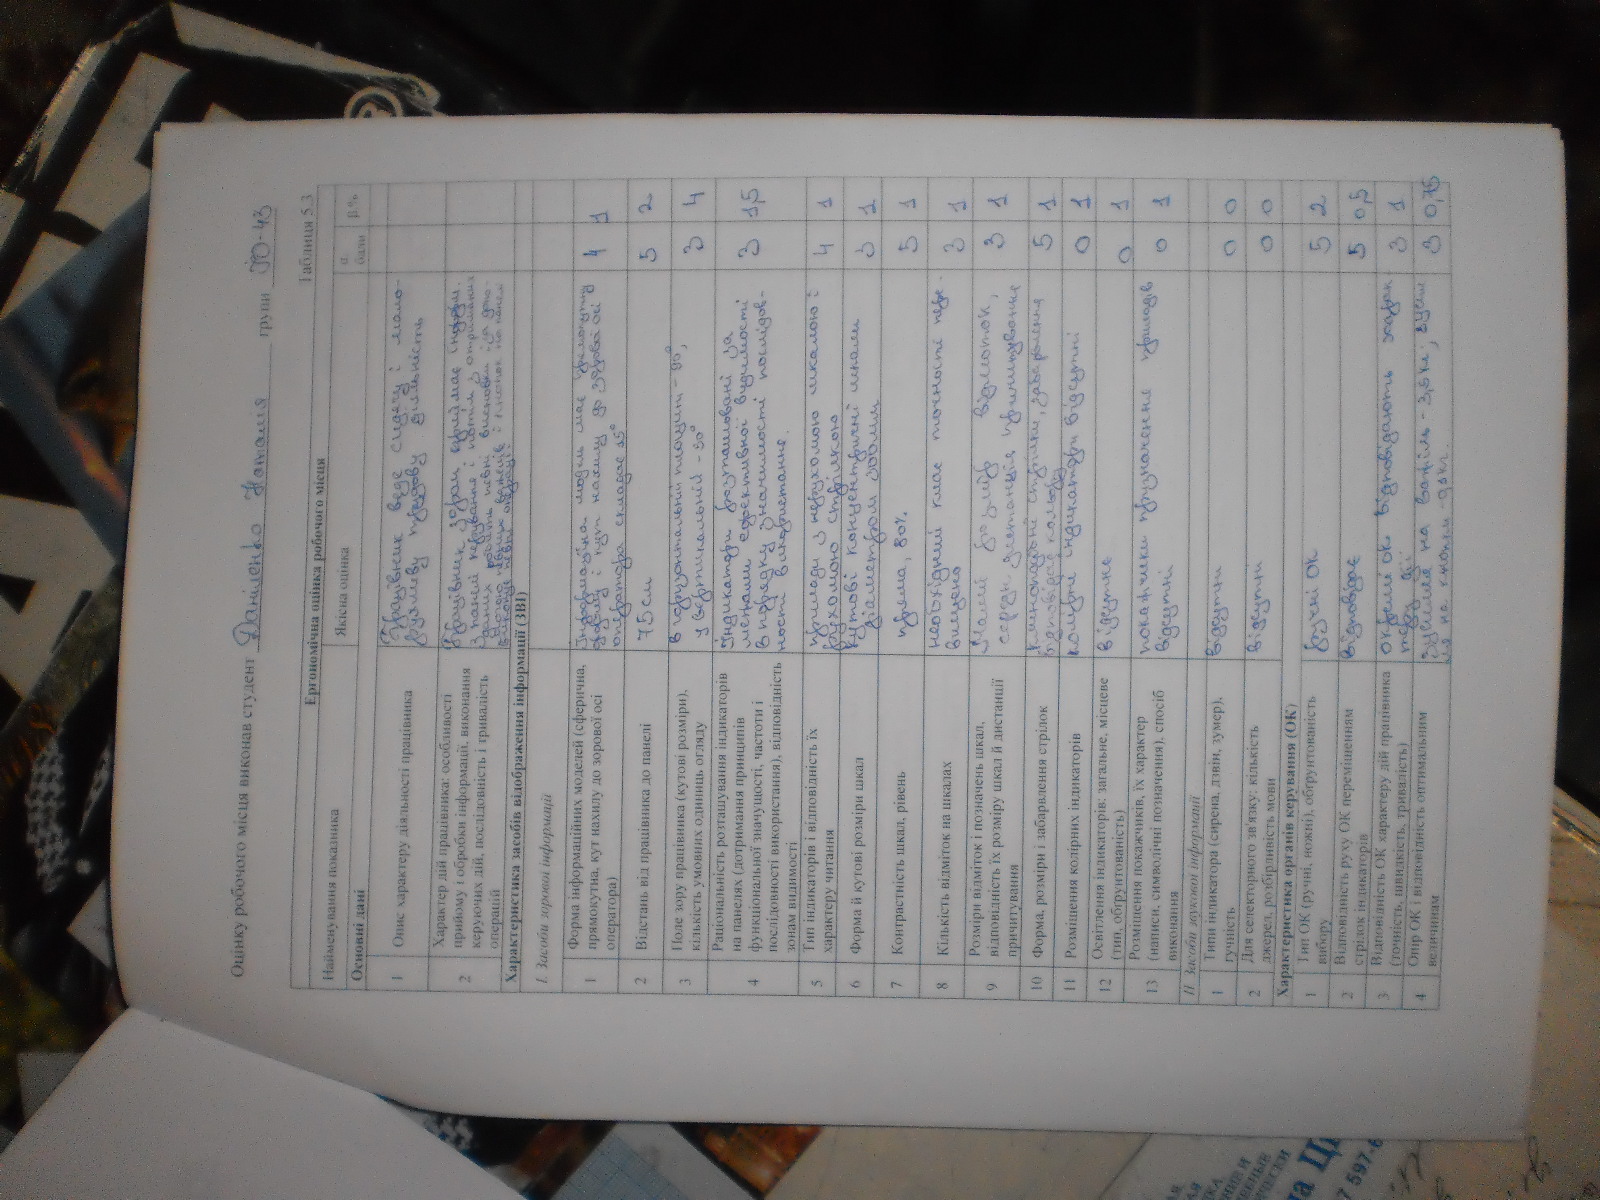 Оцінку робочого місця виконав студент Даніленко Наталія групи
Таблиця 5.3
Ергономічна оцінка робочого місця
Найменування показника
Якісна оцінка
α бали
β,%
Основні дані
1
Опис характеру діяльності працівника
Працівник веде сидячу і мало-
рухливу трудову діяльність
2
Характер дій працівника: особливості
прийому і обробки інформації, виконання
керуючих дій, послідовність і тривалість
операцій
Працівник зором сприймає інформ.
з панелі керування і потім з отриманих
даних робить певні висновки і за допо-
Характеристика засобів відображення інформації (ЗВІ)
I. Засоби зорової інформації
1
Форма інформаційних моделей (сферична,
прямокутна, кут нахилу до зорової осі
оператора)
Інформаційна модель має прямокутну
форму і кут нахилу до зорової осі у
оператора складає 25°
4
1
2
Відстань від працівника до панелі
75см
5
2
3
Поле зору працівника (кутові розміри),
кількість умовних одиниць огляду
в горизонтальній площині - 90°,
у вертикальній - 50°
3
4
4
Раціональність розташування індикаторів
на панелях (дотримання принципів
функціональної значущості, частоти і
послідовності використання), відповідність
зонам видимості
Індикатори розташовані за
межами ефективної видимості
в порядку значимості послідов-
ності використання.
3
1,5
5
Тип індикаторів і відповідність їх
характеру читання
прилади з нерухомою шкалою і
рухомою стрілкою
4
1
6
Форма й кутові розміри шкал
кутові концентричні шкали
діаметром 300мм
3
1
7
Контрастність шкал, рівень
пряма, 80%
5
1
8
Кількість відміток на шкалах
необхідний клас точності
3
1
9
Розміри відміток і позначень шкал,
відповідність їх розміру шкал й дистанції
причитування
Малий розмір відміток,
середня дистанція причитування
3
1
10
Форма, розміри і забарвлення стрілок
клиноподібні стрілки, забарвлення
відповідає кольору
5
1
11
Розміщення колірних індикаторів
колірні індикатори відсутні
0
1
12
Освітлення індикаторів: загальне, місцеве
(тип, обґрунтованість)
відсутнє
0
1
13
Розміщення покажчиків, їх характер
(написи, символічні позначення), спосіб
виконання
покажчики призначення приладів
відсутні
0
1
II Засоби звукової інформації
1
Типи індикатора (сирена, дзвін, зумер),
гучність
відсутні
0
0
2
Для селекторного зв'язку: кількість
джерел, розбірливість мови
відсутні
0
0
Характеристика органів керування (ОК)
1
Тип ОК (ручні, ножні), обґрунтованість
вибору
ручні ОК
5
2
2
Відповідність руху ОК переміщенням
стрілок індикаторів
відповідає
5
0,5
3
Відповідність ОК характеру дій працівника
(точність, швидкість, тривалість)
окремі ОК відповідають
3
1
4
Опір ОК і відповідність оптимальним
величинам
зусилля на важіль - 3,5 кг; зусил
ля на кнопки
3
0,75